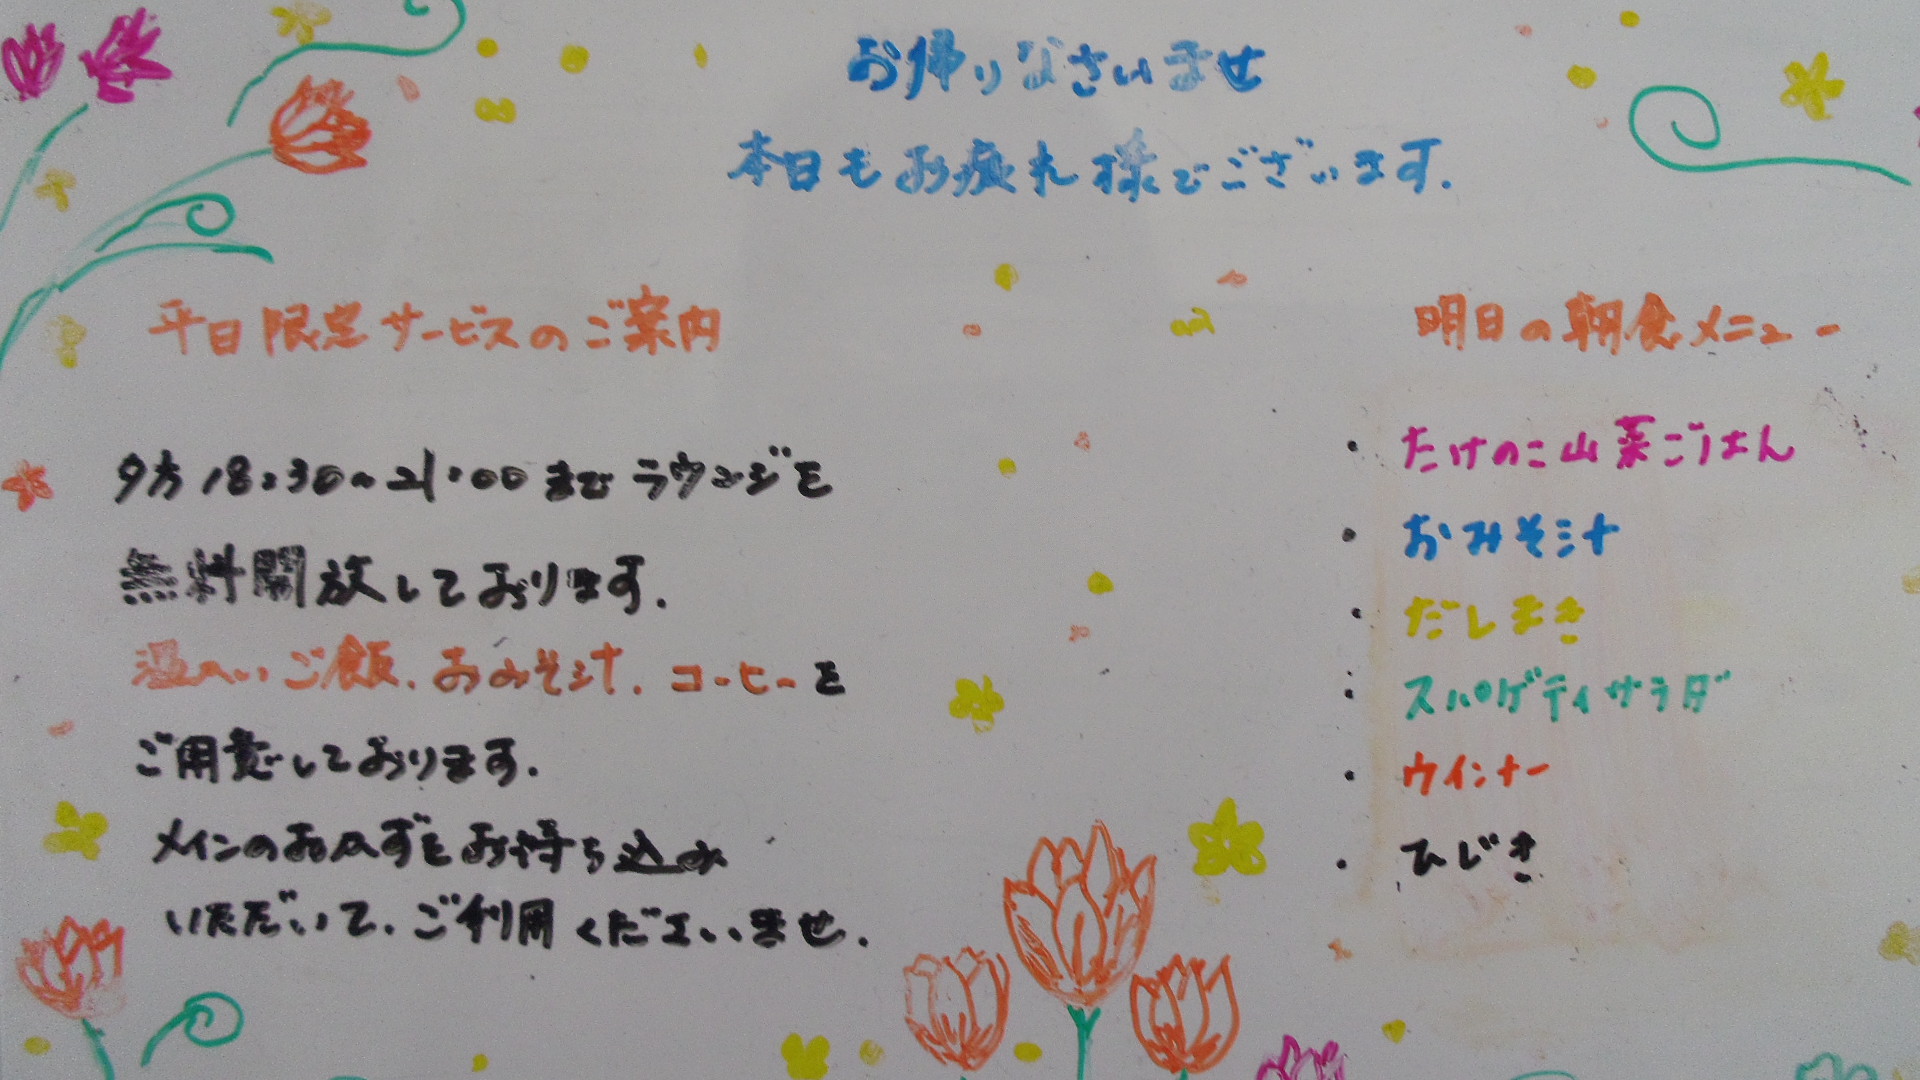 お帰りなさいませ
本日もお疲れ様でございます.
平日限定サービスのご案内
夕方 18:30～21:00 まで ラウンジを
無料開放しております.
温かいご飯. おみそ汁. コーヒーを
ご用意しております.
メインのおかずをお持ち込み
いただいて. ご利用くださいませ.
明日の朝食メニュー
・ たけのこ山菜ごはん
・ おみそ汁
・ だしまき
・ スパゲティサラダ
・ ウインナー
・ ひじき